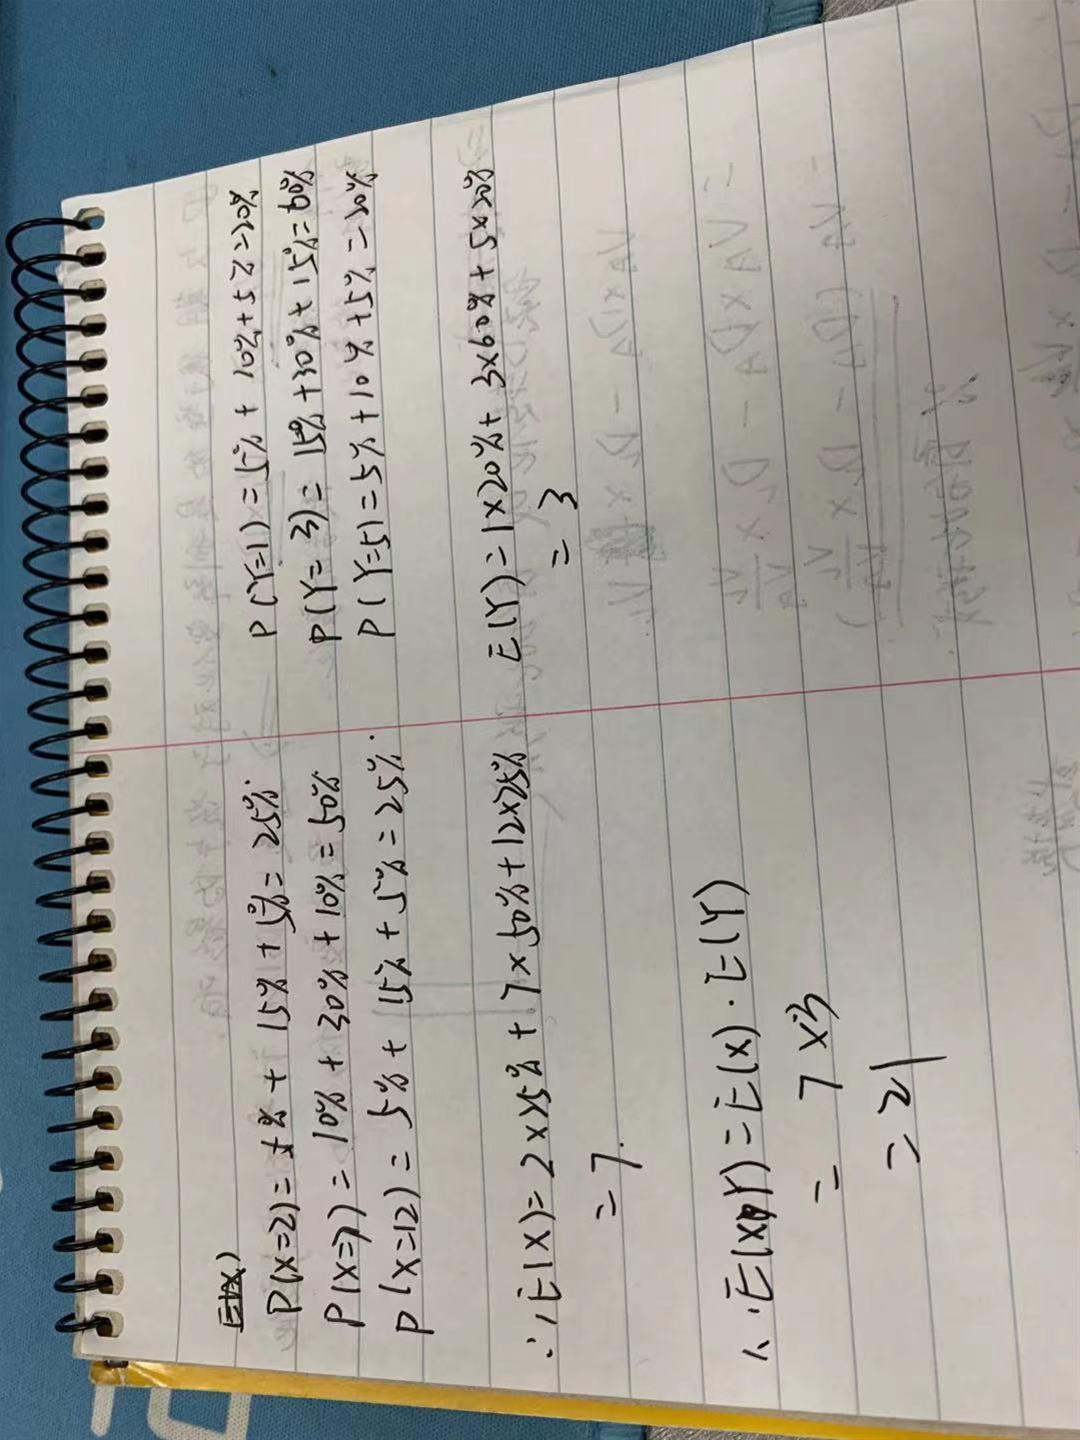 P(X=2)=5% + 15% + 5% = 25%.
P(X=7) = 10% + 30% + 10% = 50%
P(X=12) = 5% + 15% + 5% = 25%.
P(Y=1) = 5% + 10% + 5% = 20%
P(Y=3) = 15% + 30% + 15% = 60%
P(Y=5) = 5% + 10% + 5% = 20%
∴E(X) = 2×25% + 7×50% + 12×25%
= 7.
E(Y) = 1×20% + 3×60% + 5×20%
= 3
∴E(XY) = E(X)·E(Y)
= 7×3
= 21